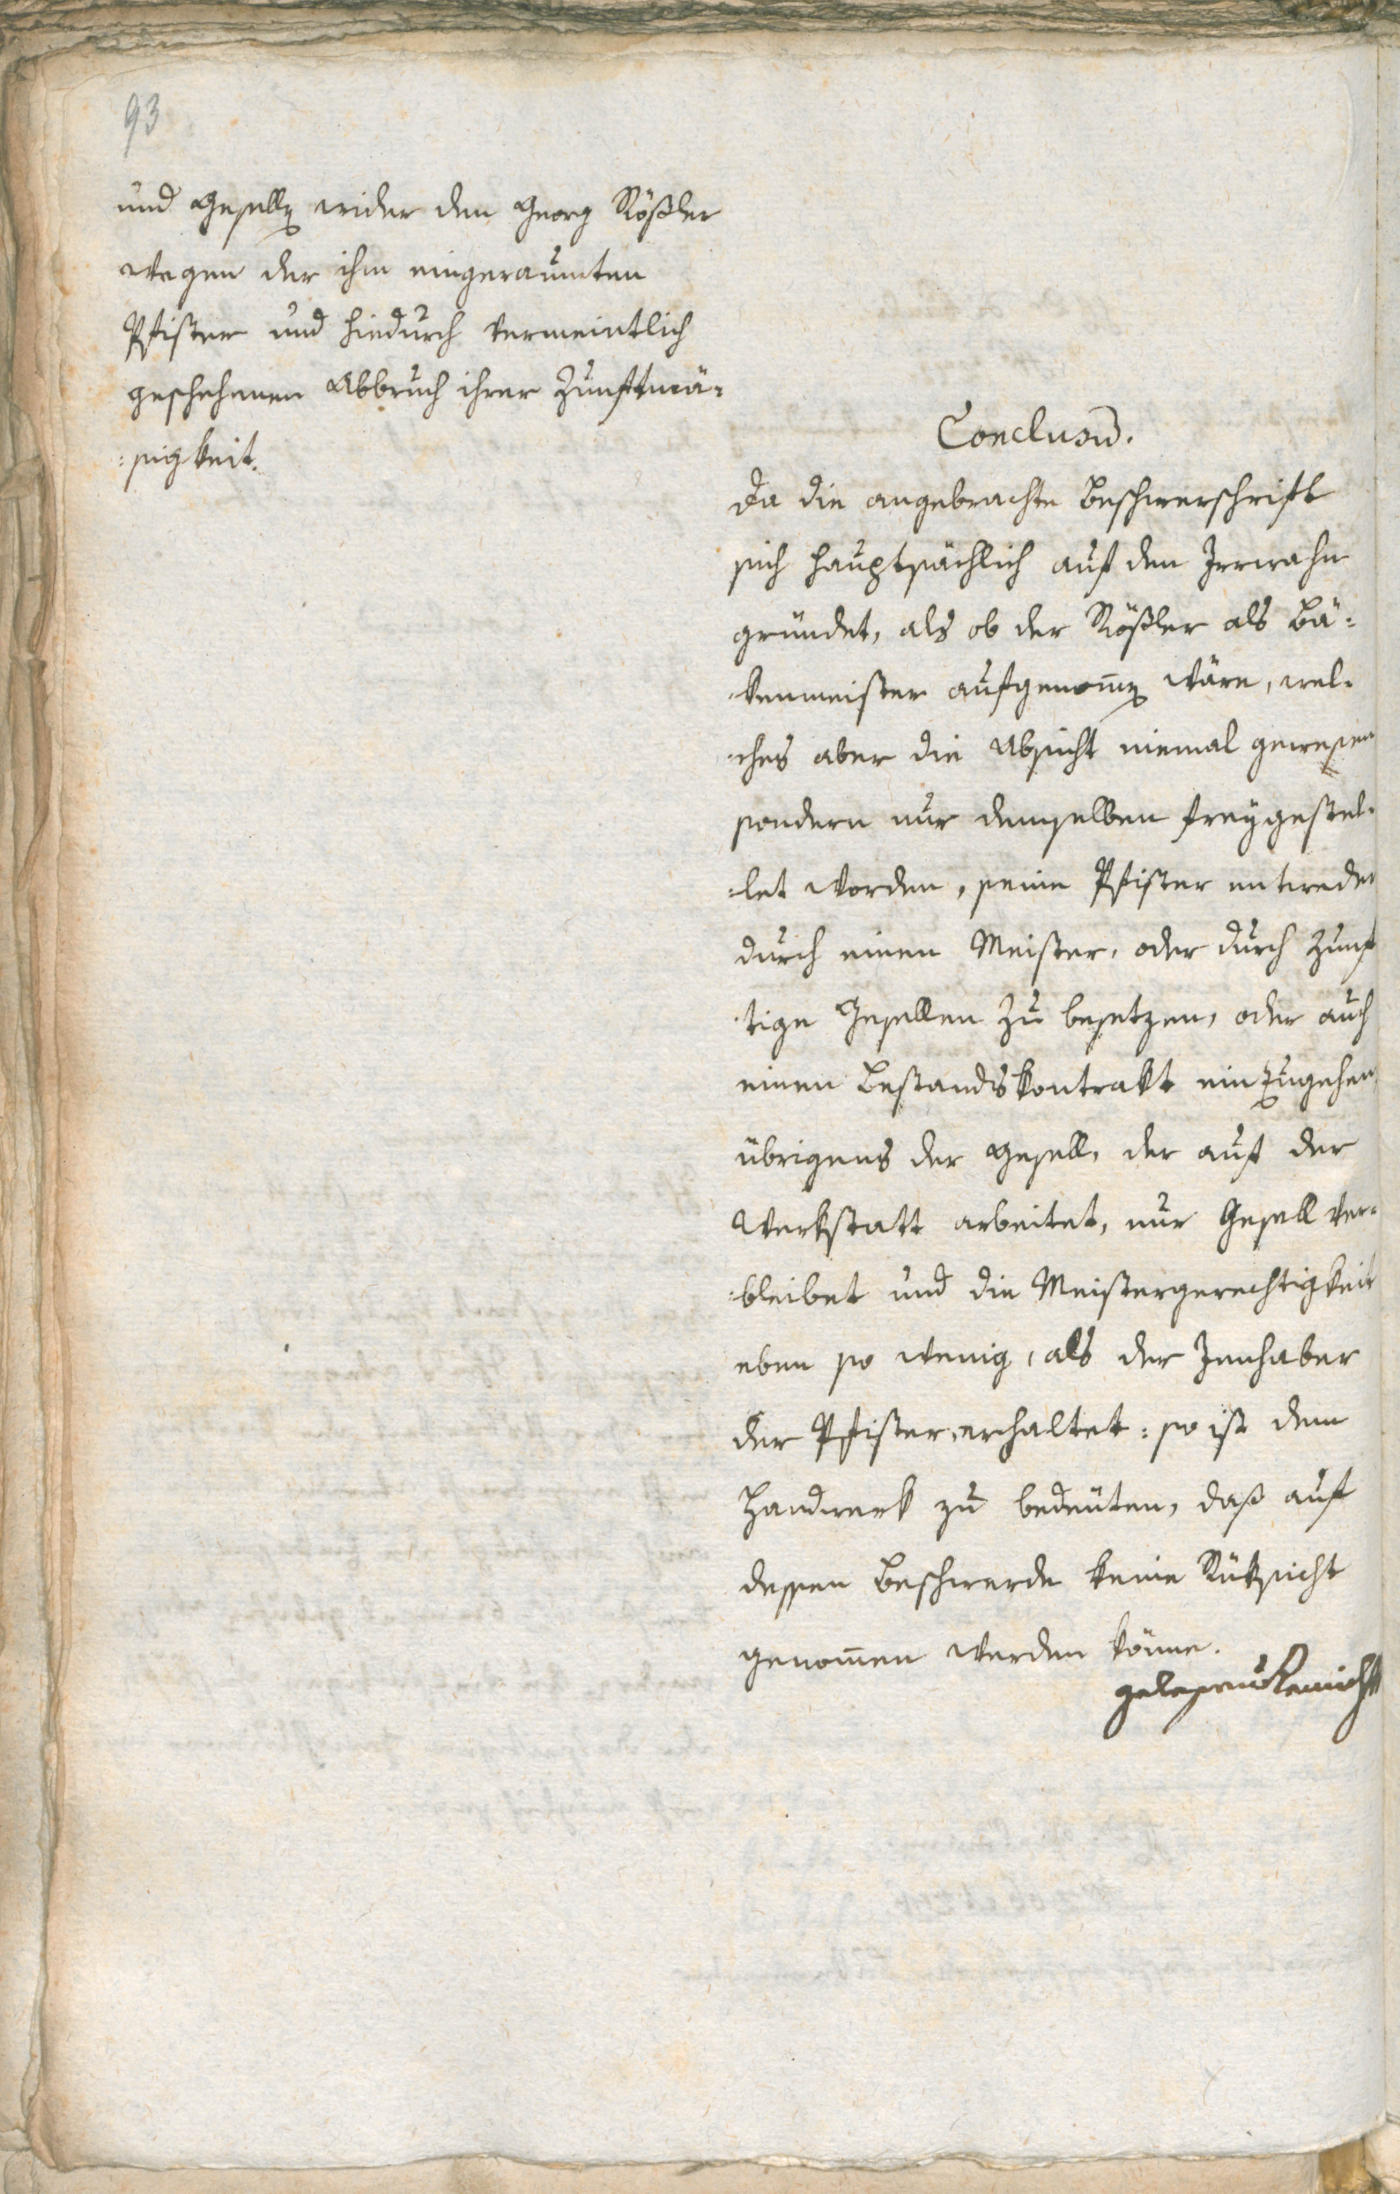 93
und Geselln wider den Georg Rößler
wegen der ihm eingeraumten
Pfister und hiedurch vermeintlich
geschehenen Abbruch ihrer Zunftmä-
:sigkeit.
Conclusū.
Da die angebrachte Beschwerschrift
sich hauptsächlich auf den Irrwahn
gründet, als ob der Rößler als Bä-
kenmeister aufgenom̄n wäre, wel-
ches aber die Absicht niemal gewesen
sondern nur demselben freygestel-
:let worden, seine Pfister entweder
durch einen Meister, oder durch zunf
tige Gesellen zu besetzen, oder auch
einen Bestandskontrakt einzugehen,
übrigens der Gesell, der auf der
Werkstatt arbeitet, nur Gesell ver-
bleibet und die Meistergerechtigkeit
eben so wenig, als der Innhaber
der Pfister, erhaltet: so ist dem
Handwerk zu bedeuten, daß auf
dessen Beschwerde keine Rüksicht
genom̄en werden könne.